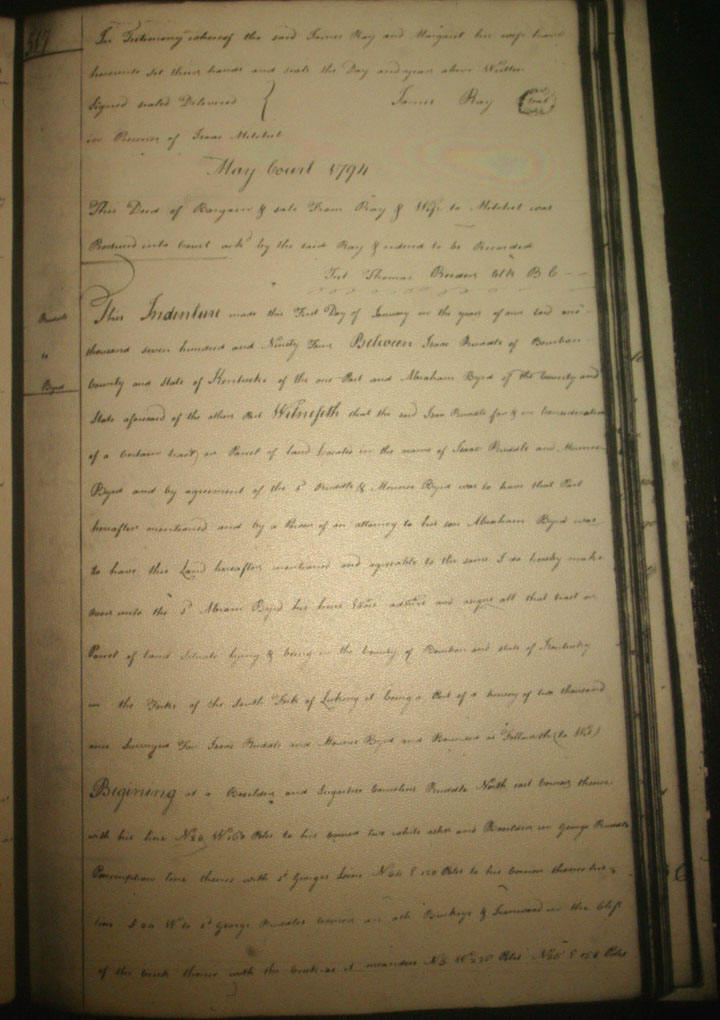 517
In Testimony whereof the said James Ray and Margaret his wife have
hereunto set their hands and seals the Day and year above Written
Signed sealed Delivered James Ray Seal
in Presence of Isaac Mitchel
May Court 1794
This Deed of Bargain & sale From Ray & Wife to Mitchel was
Produced into Court ackd by the said Ray & ordered to be Recorded
Test Thomas Clk B C
Ruddle
to
Byrd
This Indenture made this First Day of January in the year of our Lord one
thousand seven hundred and Ninety Four Between Isaac Ruddle of Bourbon
County and State of Kentucke of the one Part and Abraham Byrd of the County and
State aforesaid of the other Part Witnesseth that the said Isaac Ruddle for & in Consideration
of a Certain tract or Parcel of land Located in the name of Isaac Ruddle and
Byrd and by agreement of the sd Ruddle & Byrd was to have that Part
hereafter mentioned and by a Power of an attorney to his son Abraham Byrd was
to have this Land hereafter mentioned and agreeable to the same I do hereby make
over unto the sd Abram Byrd his heirs and all that tract or
Parcel of land Situate lying & being in the County of Bourbon and state of Kentucky
in the Forks of the South Fork of Licking it being a Part of a survey of two thousand
acres Surveyed For Isaac Ruddle and Byrd and Bounded as Followeth (to Wit)
Begining at a and Sugartree Ruddle North east Corner thence
with his line to his Corner two white ashes and in George Ruddle
Preemption line thence with sd Georges Line N E 120 Poles to his Corner thence
line W to sd George Ruddles Corner an ash Buckeye & in the Clift
of the Creek thence with the Creek as it meanders Poles